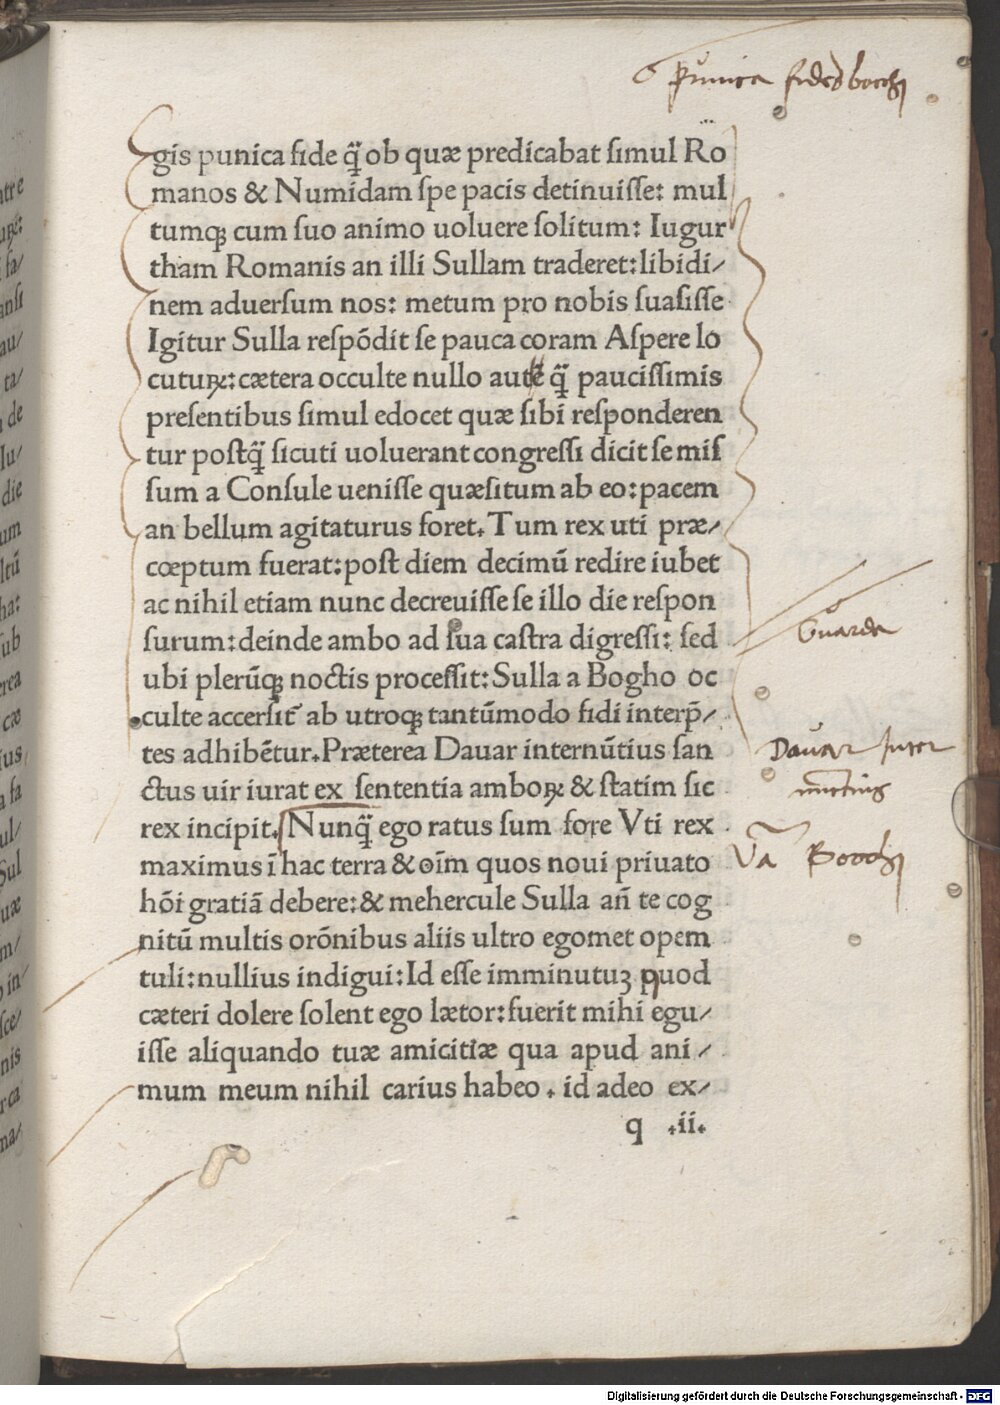 Punica fides bocchi
gis punica fide q̃ ob quæ predicabat ſimul Ro
manos & Numidam ſpe pacis detinuiſſe: mul
tumqꝫ cum ſuo animo uoluere ſolitum: Iugur
tham Romanis an illi Sullam traderet: libidi/
nem aduerſum nos: metum pro nobis ſuaſiſſe
Igitur Sulla reſpõdit ſe pauca coram Aſpere lo
cutuꝝ: cætera occulte nullo autẽ q̃ pauciſſimis
preſentibus ſimul edocet quæ ſibi reſponderen
tur poſtq̃ ſicuti uoluerant congreſſi dicit ſe miſ
ſum a Conſule ueniſſe quæſitum ab eo: pacem
an bellum agitaturus foret. Tum rex uti præ/
cœptum fuerat: poſt diem decimũ redire iubet
ac nihil etiam nunc decreuiſſe ſe illo die reſpon
ſurum: deinde ambo ad ſua caſtra digreſſi: ſed
Guarda
ubi plerũqꝫ noctis proceſſit: Sulla a Bogho oc
culte accerſit᷑ ab utroqꝫ tantũmodo fidi interp̃/
tes adhibẽtur. Præterea Dauar internũtius ſan
Dauar inter
nuntius
ctus uir iurat ex ſententia amboꝝ & ſtatim ſic
rex incipit. Nunq̃ ego ratus ſum fore Vti rex
maximus ĩ hac terra & oĩm quos noui priuato
Vã Bocchi
hõi gratiã debere: & mehercule Sulla añ te cog
nitũ multis orõnibus aliis ultro egomet opem
tuli: nullius indigui: Id eſſe imminutuꝫ quod
cæteri dolere ſolent ego lætor: fuerit mihi egu/
iſſe aliquando tuæ amicitiæ qua apud ani/
mum meum nihil carius habeo. id adeo ex/
q .ii.
Digitalisierung gefördert durch die Deutsche Forschungsgemeinschaft - DFG